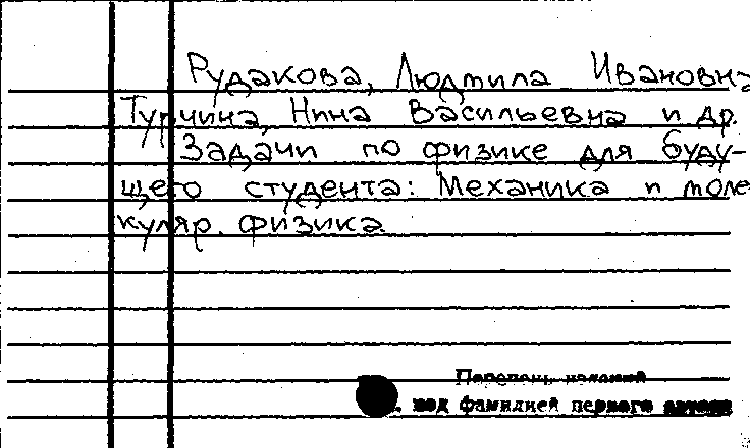 Рудакова, Людмила Ивановна
Турчина, Нина Васильевна и др.
Задачи по физике для буду-
щего студента: Механика и моле
куляр. физика.
Перечень изданий
под фамилией первого автора